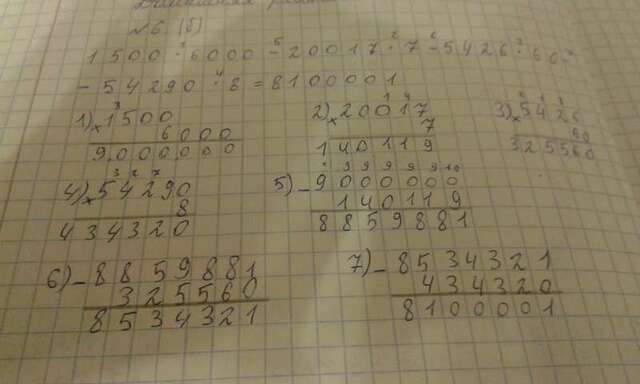 Домашняя работа
№6 (б)
1500·6000-20017·7-5426·60-
-54290·8=8100001
1) ×1500
6000
9000000
2) ×20017
7
140119
3) ×5426
60
325560
4) ×54290
8
434320
5) -9000000
140119
8859881
6) -8859881
325560
8534321
7) -8534321
434320
8100001